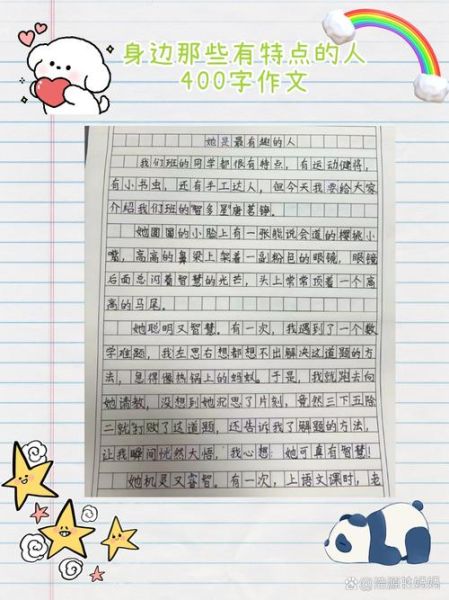 身边那些有特点的人
400字作文
她是最有趣的人
我们班的同学都很有特点，有运动健将，
有小书虫，还有手工达人，但今天我要给大家
介绍我们班的“智多星”唐茗铮。
她圆圆的小脸上有一张能说会道的樱桃小
嘴，高高的鼻梁上架着一副粉色的眼镜，眼镜
后面总闪着智慧的光芒，头上常常顶着一个高
高的马尾。
她聪明又智慧。有一次，我遇到了一个数
学难题，我左思右想都想不出解决这道题的方
法，急得像热锅上的蚂蚁。于是，我就跑去向
她请教，没想到她沉思了片刻，竟然三下五除
二就打败了这道题，还告诉我了解题的方法，
让我瞬间恍然大悟，我心想：她可真有智慧！
她机灵又睿智。有一次，上语文课时，老